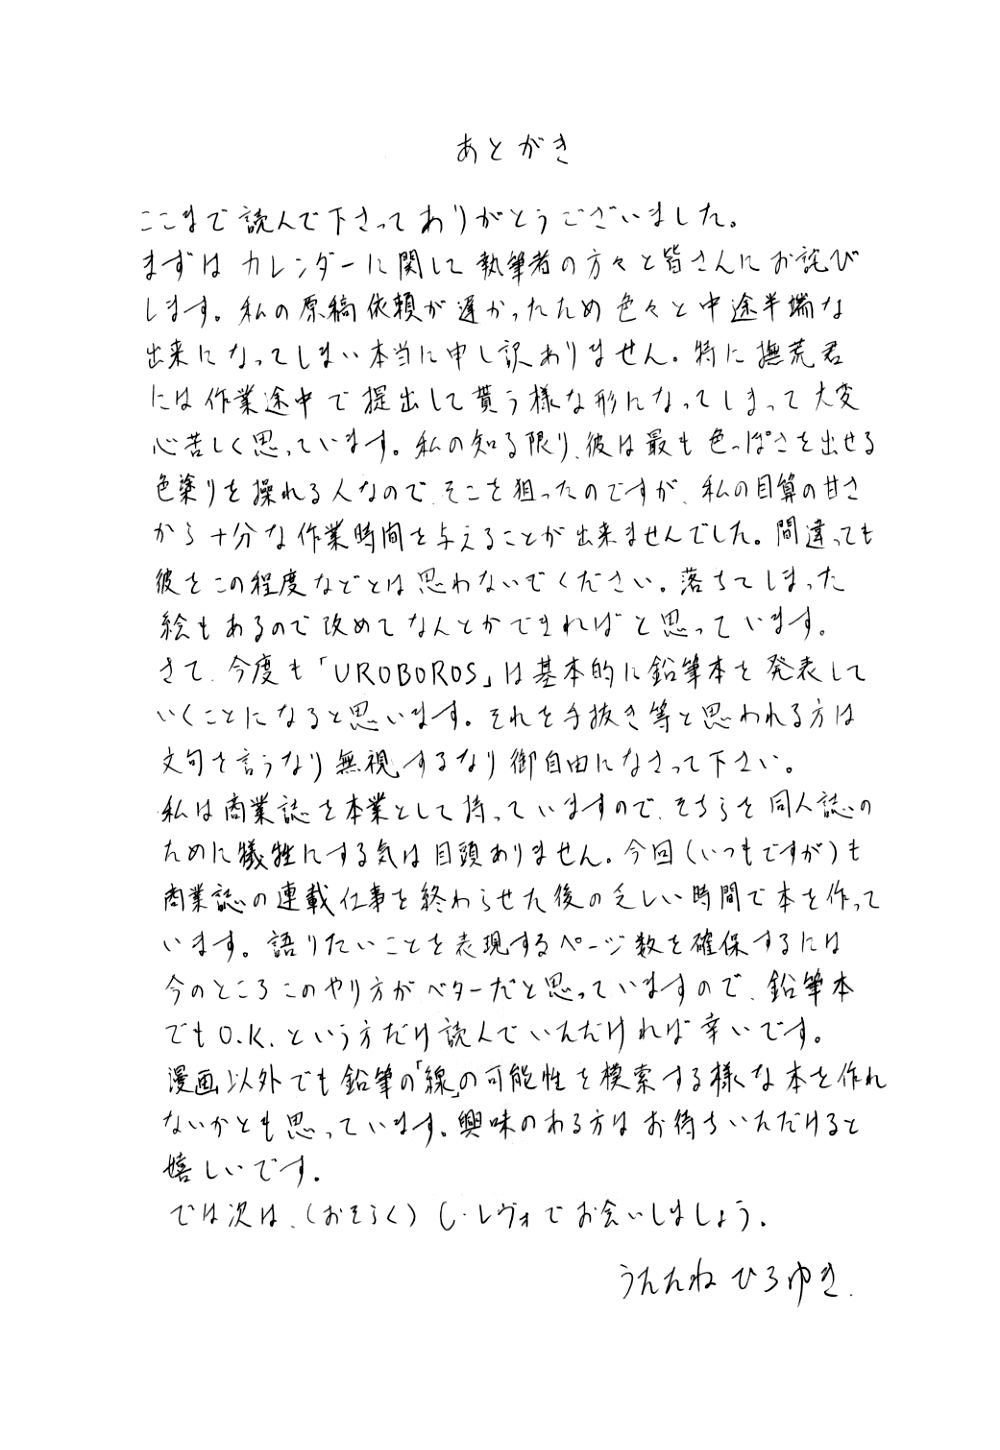 あとがき
ここまで読んで下さってありがとうございました。
まずはカレンダーに関して執筆者の方々と皆さんにお詫び
します。私の原稿依頼が遅かったため色々と中途半端な
出来になってしまい本当に申し訳ありません。特に撫荒君
には作業途中で提出して貰う様な形になってしまって大変
心苦しく思っています。私の知る限り、彼は最も色っぽさを出せる
色塗りを操れる人なので、そこを狙ったのですが、私の目算の甘さ
から十分な作業時間を与えることが出来ませんでした。間違っても
彼をこの程度などとは思わないでください。落ちてしまった
絵もあるので改めてなんとかできればと思っています。
さて、今度も「UROBOROS」は基本的に鉛筆本を発表して
いくことになると思います。それを手抜き等と思われる方は
文句を言うなり無視するなり御自由になさって下さい。
私は商業誌を本業として持っていますので、そちらを同人誌の
ために犠牲にする気は目頭ありません。今回(いつもですが)も
商業誌の連載仕事を終わらせた後の乏しい時間で本を作って
います。語りたいことを表現するページ数を確保するには
今のところこのやり方がベターだと思っていますので、鉛筆本
でもO.K.という方だけ読んでいただければ幸いです。
漫画以外でも鉛筆の「線」の可能性を模索する様な本を作れ
ないかとも思っています。興味のある方はお待ちいただけると
嬉しいです。
では次は、(おそらく)C・レヴォでお会いしましょう。
うたたねひろゆき.